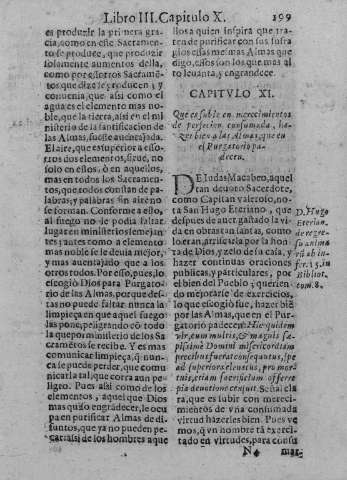 Libro III. Capitulo X. 199
es produzir la primera gracia,
como en este Sacramento
se produce, que produzir
solomente aumentos della,
como por essotros Sacramẽtos
que dize se producen; y
conuenia, que assi como el
agua es el elemento mas noble,
que la tierra, assi en el ministerio
de la santificacion de
las Almas, fuesse auentajada.
El aire, que es superior a essotros
dos elementos, sirue, no
solo en essos, ò en aquellos,
mas en todos los Sacramentos,
que todos constan de palabras,
y palabras sin aire no
se forman. Conforme a esso,
al fuego no le podia faltar
lugar en ministerios semejantes;
antes como a elemento
mas noble se le deuia mejor,
y mas auentajado que a los
otros todos. Por esso, pues, lo
escogió Dios para Purgatorio
de las Almas, porque despues
no puede faltar nunca la
limpieça en que aquel fuego
las pone, peligrando cõ todo
la que por ministerio de los Sacramẽtos
se recibe. Y es mas
comunicar limpieça, q̃ nunca
se puede perder, que comunicarla
tal, que corra aun peligro.
Pues assi como de los
elementos, aquel que Dios
mas quiso engrãdecer, le ocupa
en purificar Almas de difuntos,
que ya no pueden pecar;
assi de los hombres aque
llos a quien inspira que traten
de purificar con sus sufragios
essas mesmas Almas que
digo, essos son los que mas alto
leuanta, y engrandece.
CAPITVLO XI.
Que es suble en merecimientos
de perfecion consumada, hazer
bien a las Almas, que en
el Purgatorio padecen.
DE Iudas Macabeo, aquel
tan deuoto Sacerdote,
como Capitan valeroso, nota
San Hugo Eteriano, que
despues de auer gastado la vida
en obras tan santas, como
lo eran, arriscarla por la honra
de Dios, y zelo de su casa, y
hazer continuas oraciones
publicas, y particulares, por
el bien del Pueblo; queriendo
mejorarse de exercicios,
lo que escogió fue, hazer biẽ
por las Almas, que en el Purgatorio
padecen: Hic quidem
vir, cum multis, & magnis sæpissimè
Domini misericordiam
precibus fuerat consequutus, spe
ad superiora euectus, pro mortuis,
etiam sacrificium offerre
pia deuotione cœpit. Señal clara,
que es subir con merecimientos
de vna consumada
virtud hazerles bien. Pues vemos,
q̃ vn hombre tã exercitado
en virtudes, para consu
D. Hugo
Eterian.
de regressu
anima
rũ ab infer.
15. in
Bibliot.
tom. 8.
N 4 mar-